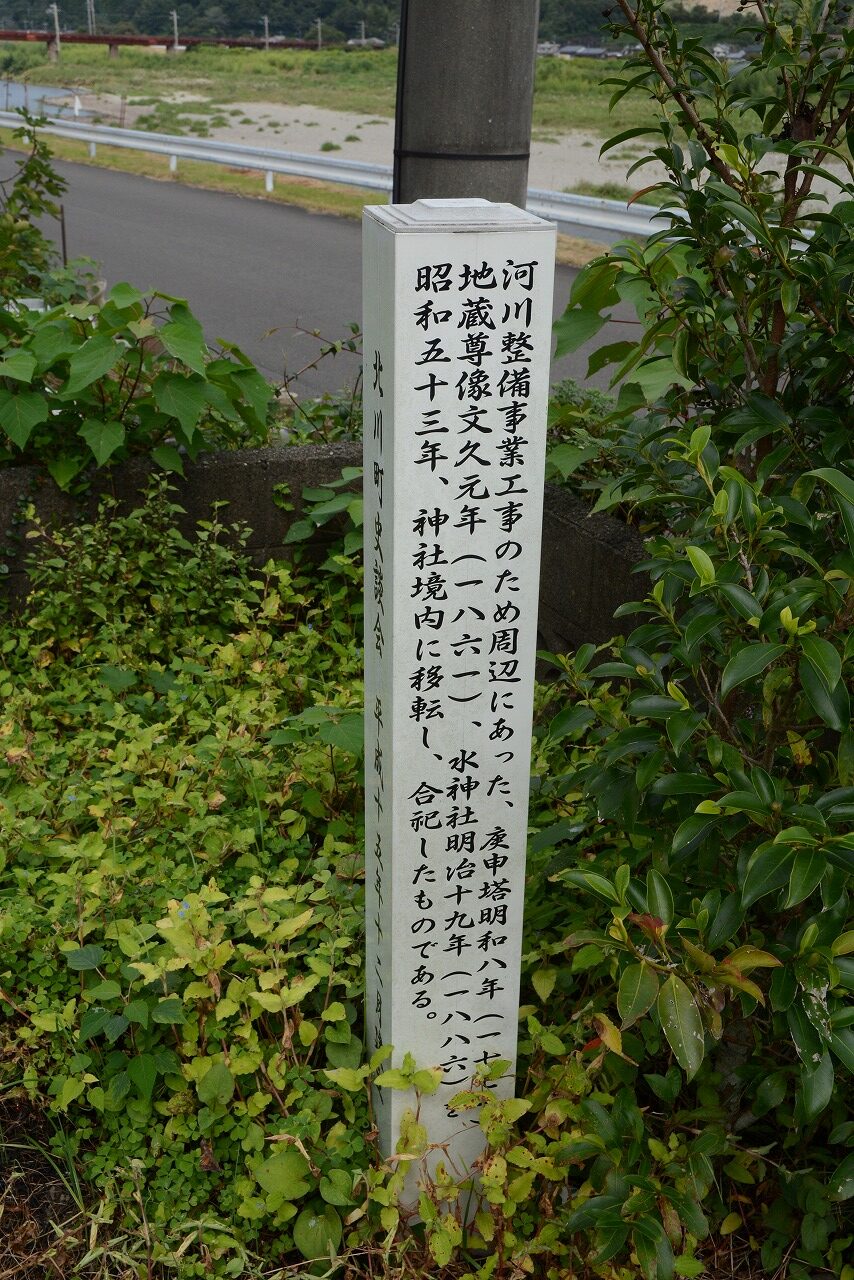 河川整備事業工事のため周辺にあった、庚申塔明和八年（一七
地蔵尊像文久元年（一八六一）、水神社明治十九年（一八八六）を、
昭和五十三年、神社境内に移転し、合祀したものである。
北川町史談会 平成十五年十二月